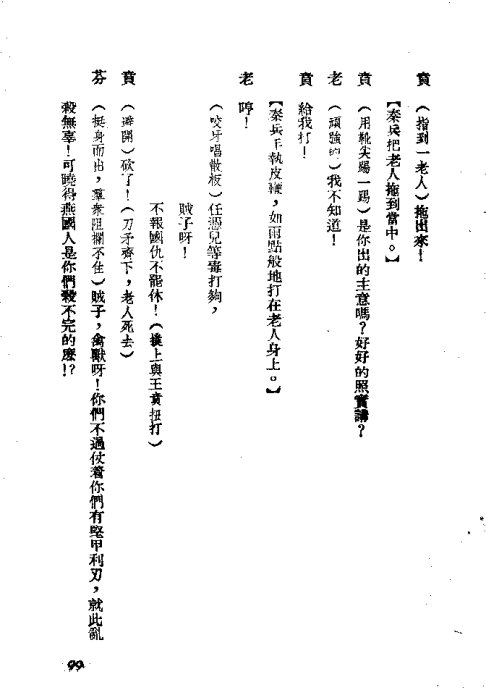 賁 （指到一老人）拖出來！
【秦兵把老人拖到當中。】
賁 （用靴尖踢一踢）是你出的主意嗎？好好的照實講？
老 （頑強的）我不知道！
賁 給我打！
【秦兵手執皮鞭，如雨點般地打在老人身上。】
老 哼！
（咬牙唱散板）任憑兒等毒打夠，
賊子呀！
不報國仇不罷休！（撲上與王賁扭打）
賁 （避開）砍了！（刀矛齊下，老人死去）
芬 （挺身而出，羣衆阻攔不住）賊子，禽獸呀！你們不過仗着你們有堅甲利刃，就此亂
殺無辜！可曉得燕國人是你們殺不完的麽！？
99